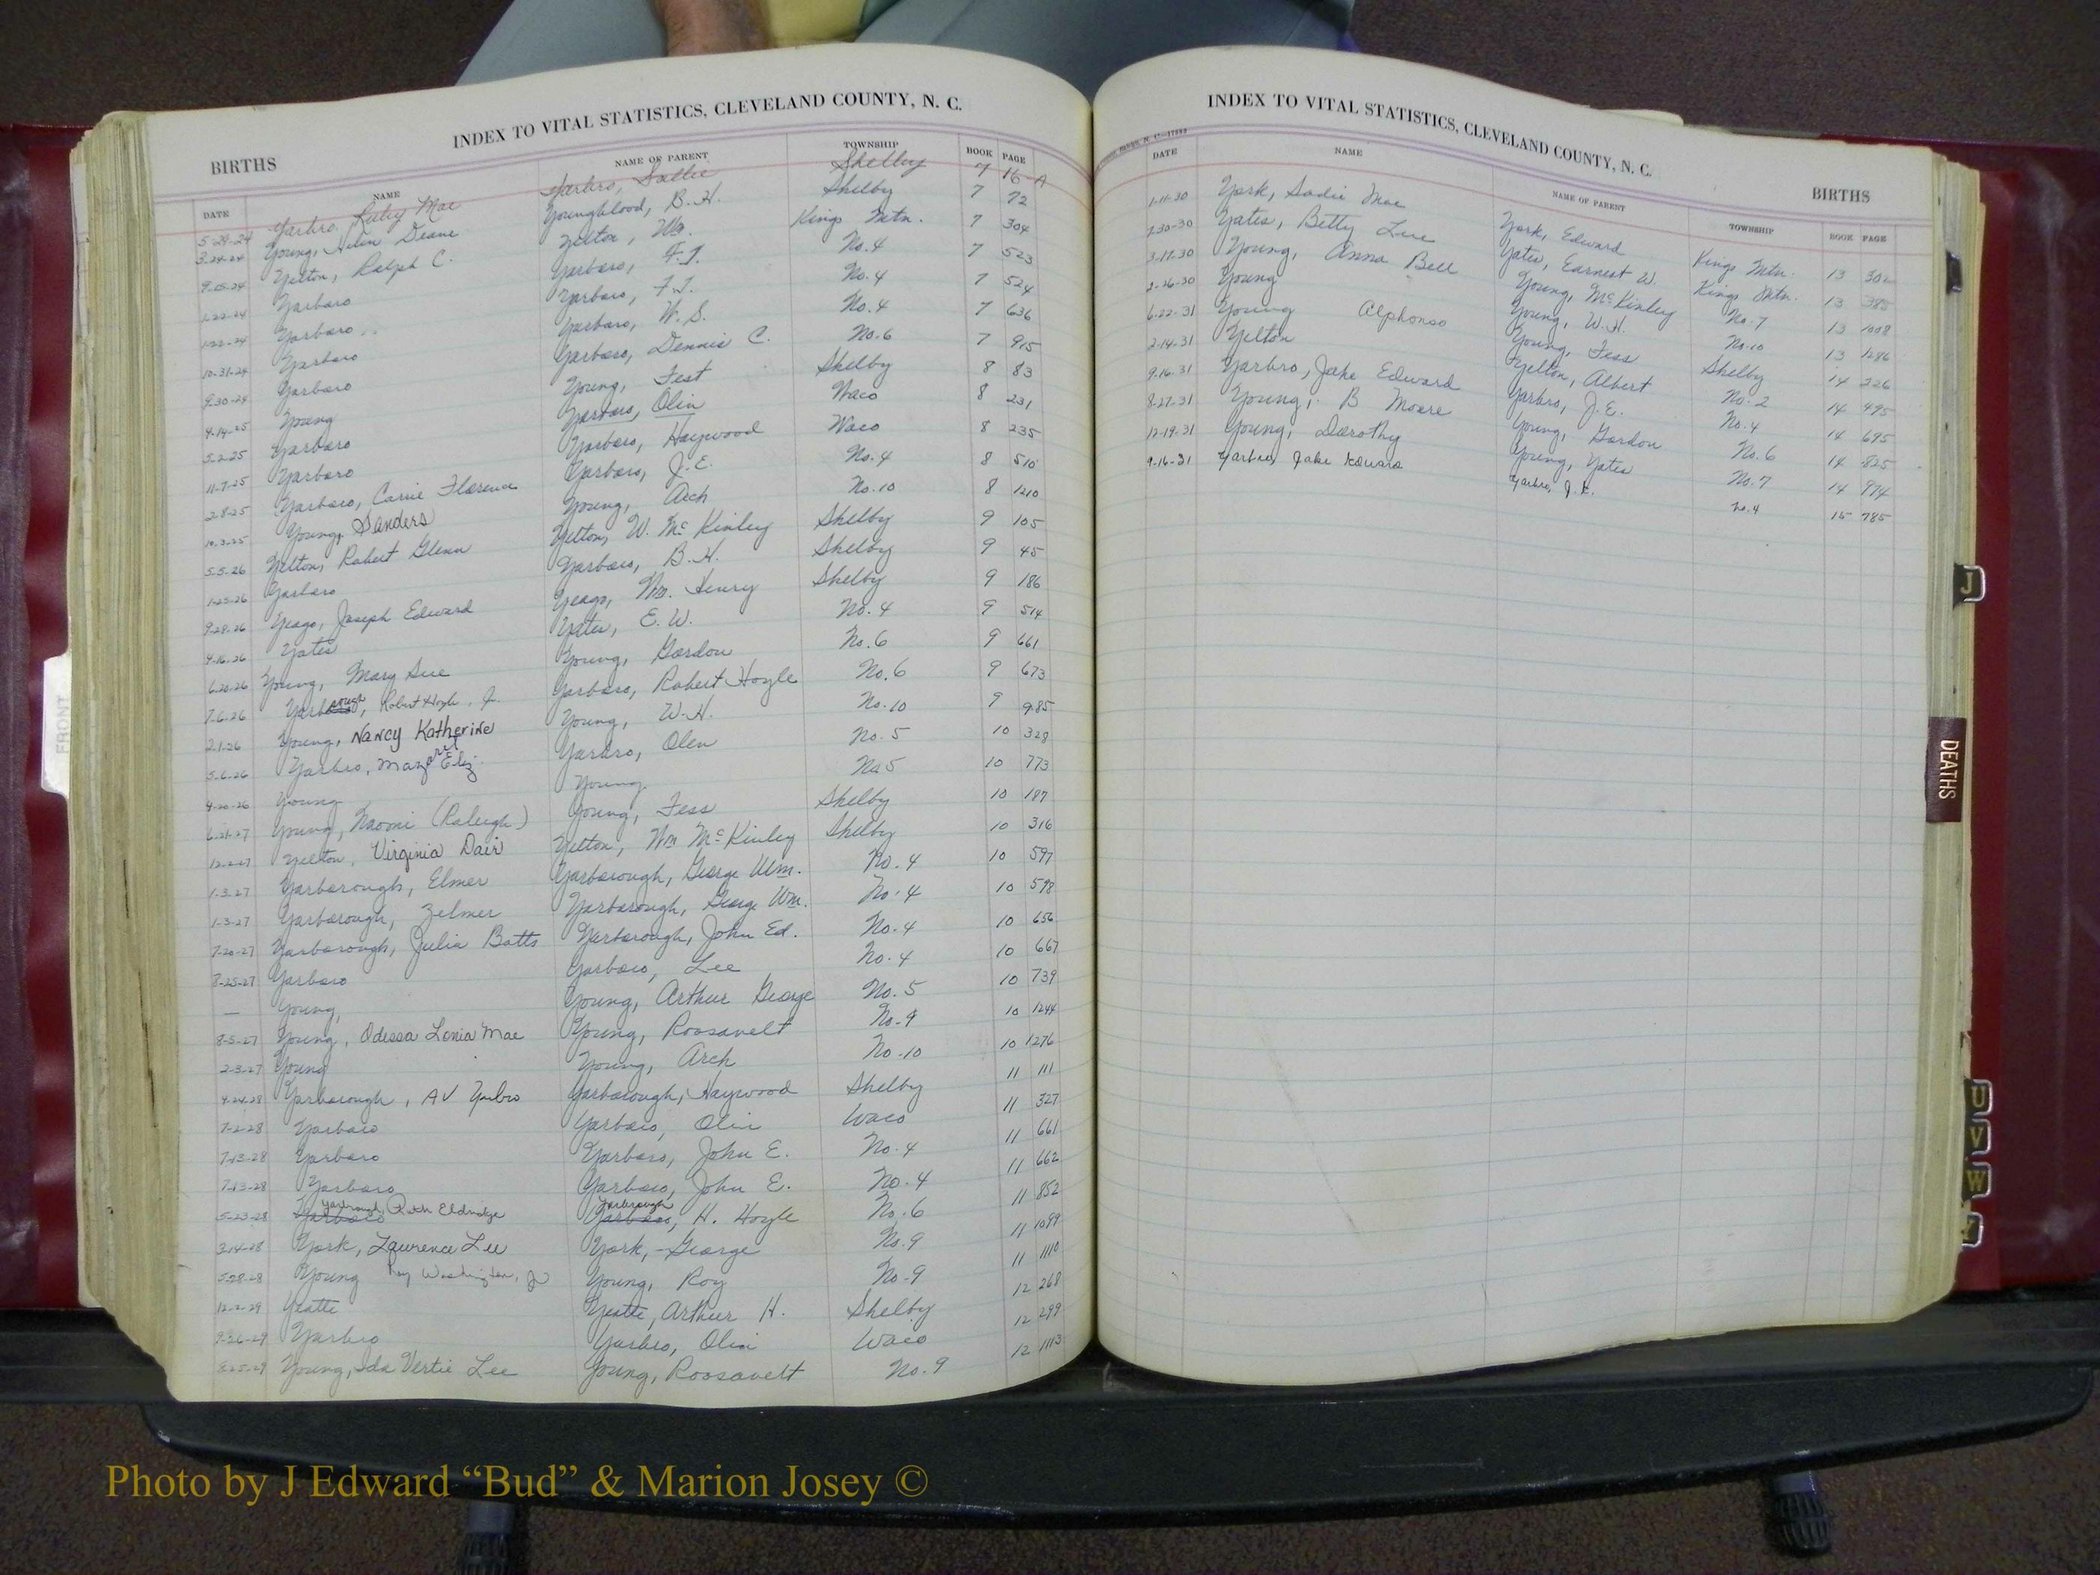 INDEX TO VITAL STATISTICS, CLEVELAND COUNTY, N. C.
BIRTHS
DATE NAME NAME OF PARENT TOWNSHIP BOOK PAGE
5-29-24 Yarbro, Ruby Mae Yarbro, Sallie Shelby 7 16-A
3-24-24 Young, Helen Deane Youngblood, B. H. Shelby 7 72
9-15-24 Yelton, Ralph C. Yelton, Wm. Kings Mtn. 7 304
1-22-24 Yarboro Yarboro, F. J. No. 4 7 523
1-22-24 Yarboro Yarboro, F. J. No. 4 7 524
10-31-24 Yarboro Yarboro, W. S. No. 4 7 636
9-30-24 Yarboro Yarboro, Dennis C. No. 6 7 915
4-14-25 Young Young, Fest Shelby 8 83
5-2-25 Yarboro Yarboro, Olin Waco 8 231
11-7-25 Yarboro Yarboro, Haywood Waco 8 235
2-8-25 Yarboro, Carrie Florence Yarboro, J. E. No. 4 8 510
10-3-25 Young, Sanders Young, Arch No. 10 8 1210
5-5-26 Yelton, Robert Glenn Yelton, W. McKinley Shelby 9 105
1-25-26 Yarboro Yarboro, B. H. Shelby 9 45
9-28-26 Yeago, Joseph Edward Yeago, Wm. Henry Shelby 9 186
4-16-26 Yates Yates, E. W. No. 4 9 514
6-20-26 Young, Mary Sue Young, Gordon No. 6 9 661
7-6-26 Yarbrough, Robert Hoyle, Jr. Yarboro, Robert Hoyle No. 6 9 673
2-1-26 Young, Nancy Katherine Young, W. H. No. 10 9 985
5-6-26 Yarbro, Margaret Eliz. Yarbro, Olen No. 5 10 328
4-20-26 Young Young No 5 10 773
6-21-27 Young, Naomi (Raleigh) Young, Fess Shelby 10 187
12-2-27 Yelton, Virginia Dair Yelton, Wm McKinley Shelby 10 316
1-3-27 Yarborough, Elmer Yarborough, George Wm. No. 4 10 597
1-3-27 Yarborough, Zelmer Yarborough, George Wm. No. 4 10 598
7-20-27 Yarborough, Julia Batts Yarborough, John Ed. No. 4 10 656
8-25-27 Yarboro Yarboro, Lee No. 4 10 667
— Young, Young, Arthur George No. 5 10 739
8-5-27 Young, Odessa Lonia Mae Young, Roosavelt No. 9 10 1244
2-3-27 Young Young, Arch No. 10 10 1276
4-24-28 Yarborough, AV Yarbro Yarborough, Haywood Shelby 11 111
7-2-28 Yarboro Yarboro, Olin Waco 11 327
7-13-28 Yarboro Yarboro, John E. No. 4 11 661
7-13-28 Yarboro Yarboro, John E. No. 4 11 662
5-23-28 Yarboro Yarbrough, Ruth Eldridge Yarboro Yarbrough, H. Hoyle No. 6 11 852
3-14-28 York, Lawrence Lee York, George No. 9 11 1099
5-28-28 Young Roy Washington, Jr Young, Roy No. 9 11 1110
12-2-29 Yeatte Yeatte, Arthur H. Shelby 12 268
9-26-29 Yarbro Yarbro, Olin Waco 12 299
5-25-29 Young, Ida Vertie Lee Young, Roosavelt No. 9 12 1113
INDEX TO VITAL STATISTICS, CLEVELAND COUNTY, N. C.
BIRTHS
DATE NAME NAME OF PARENT TOWNSHIP BOOK PAGE
1-11-30 York, Sadie Mae York, Edward Kings Mtn. 13 302
7-30-30 Yates, Betty Lue Yates, Earnest W. Kings Mtn. 13 385
3-17-30 Young, Anna Bell Young, McKinley No. 7 13 1008
2-26-30 Young Young, W. H. No. 10 13 1286
6-22-31 Young Alphonso Young, Fess Shelby 14 226
2-14-31 Yelton Yelton, Albert No. 2 14 495
9-16-31 Yarbro, Jake Edward Yarbro, J. E. No. 4 14 695
8-27-31 Young, B Moore Young, Gordon No. 6 14 825
12-19-31 Young, Dorothy Young, Yates No. 7 14 974
9-16-31 Yarbro, Jake Edward Yarbro, J. E. No. 4 15 785
FRONT
J
DEATHS
U
V
W
Photo by J Edward “Bud” & Marion Josey ©